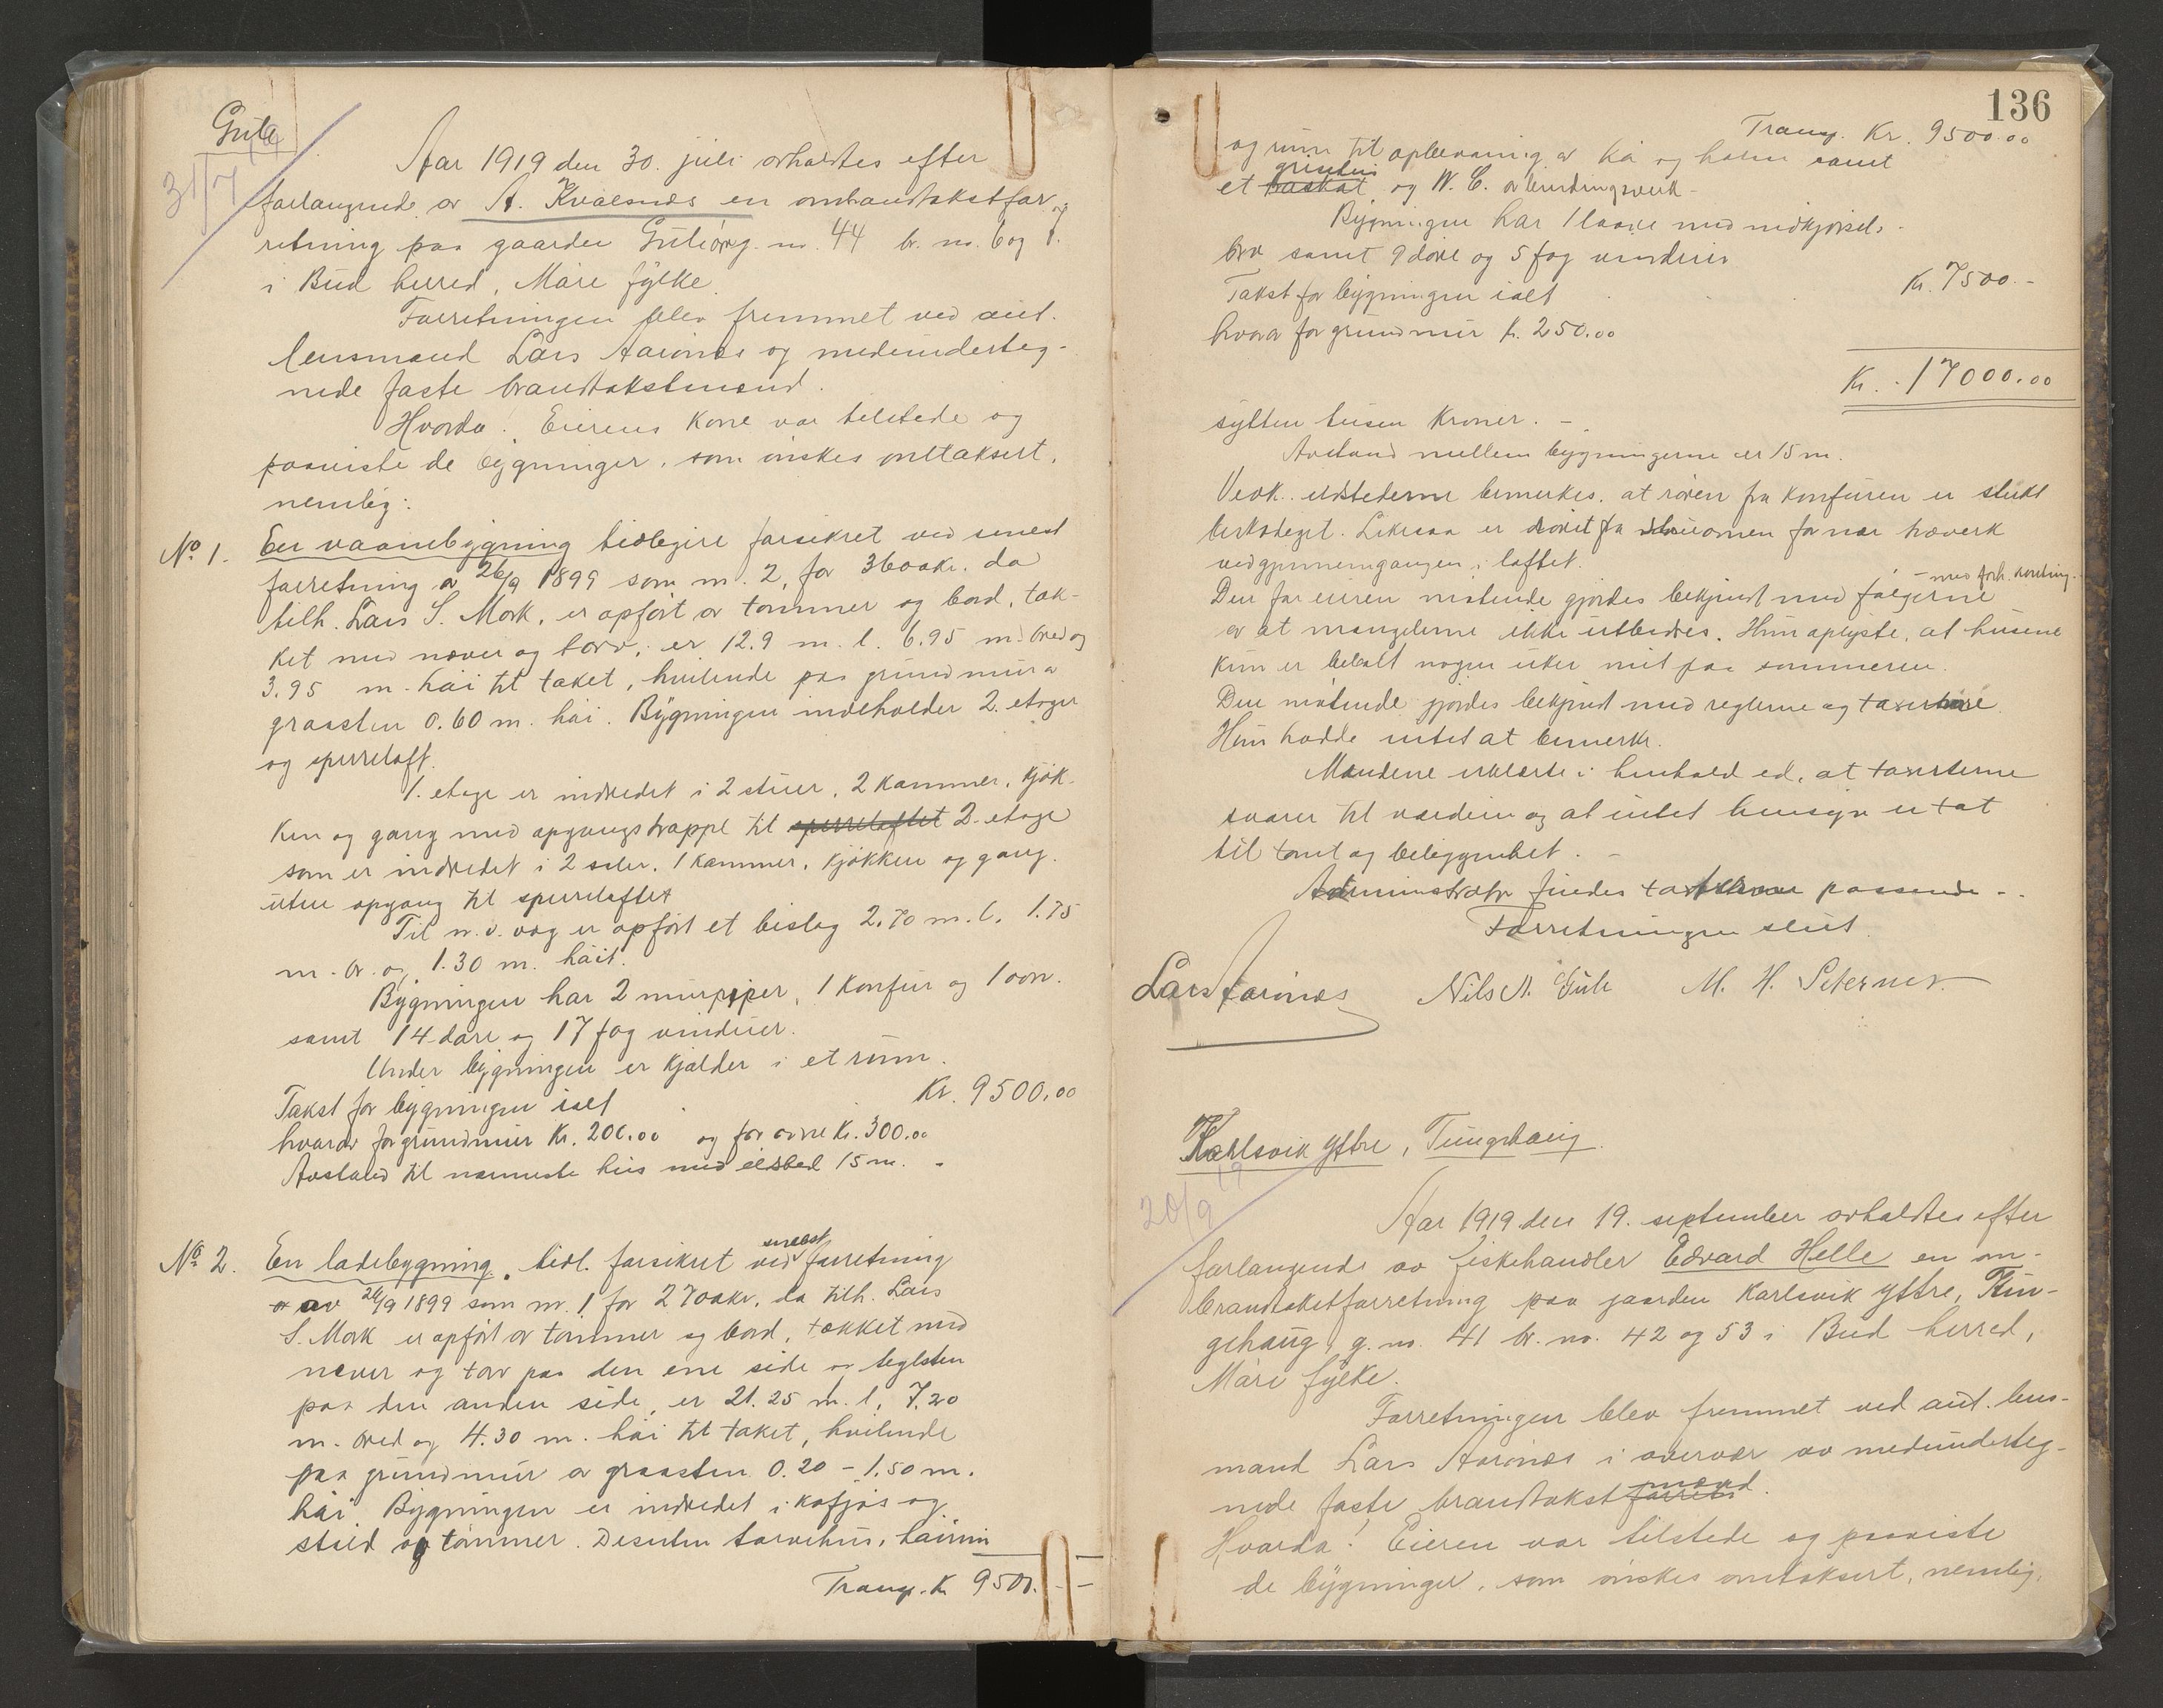 Gule
31/7 19
Aar 1919 den 30. juli avholdtes efter
forlangende av A. Kvalsnes en ombrandtakstfor-
retning paa gaarden Gule g. nr. 44 br. nr. 6 og 8.
i Bud herred, Møre fylke.
Forretningen blev fremmet ved aut.
lensmand Lars Aarønes og medunderteg-
nede faste brandtakstmænd.
Hvorda! Eierens kone var tilstede og
paaviste de bygninger, som ønskes omtaksert,
nemlig:
No 1. En vaanebygning tidligere forsikret ved senest
forretning av 26/9 1899 som nr. 2, for 3600 kr. da
tilh. Lars S. Mork, er opført av tømmer og bord, tæk-
ket med næver og torv, er 12.9 m. l. 6.95 m. bred og
3.95 m. høi til taket, hvilende paa grundmur av
graasten 0.60 m. høi. Bygningen indeholder 2. etager
og sperreloft.
1. etage er indredet i 2 stuer, 2 kammer, kjøk-
ken og gang med opgangstrappe til sperreloftet 2. etage
som er indredet i 2 saler, 1 kammer, kjøkken og gang.
uten opgang til sperreloftet
Til n. v. væg er opført et bislag 2.70 m. l. 1.75
m. br. og 1.30 m. høit.
Bygningen har 2 murpiper, 1 komfur og 1 ovn.
samt 14 døre og 17 fag vinduer.
Under bygningen er kjælder i et rum.
Takst for bygningen ialt Kr. 9500.00
hvorav for grundmur Kr. 200.00 og for ovne Kr. 300.00
Avstand til nærmeste hus med ildsted 15 m. -
No 2. En ladebygning, tidl. forsikret ved senest forretning
av av 26/9 1899 som nr. 1 for 2700 kr. da tilh. Lars
S. Mork er opført av tømmer og bord, tækket med
næver og torv paa den ene side og teglsten
paa den anden side, er 21.25 m. l, 7.20
m. bred og 4.30 m. høi til taket, hvilende
paa grundmur av graasten 0.20 - 1.50 m.
høi. Bygningen er indredet i kufjøs og
stald av tømmer. Desuten torvehus, høirum
Transp. Kr 9500. -
136
Transp. Kr. 9500.00
og rum til opbevaring av kå og halm samt
et baskat grisehus og W. C. av bindingsverk -
Bygningen har 1 laave med nedkjørsels-
bro samt 9 døre og 5 fag vinduer
Takst for bygningen ialt Kr. 7500. -
hvorav for grundmur kr. 250.00
Kr. 17000.00
sytten tusen kroner. -
Avstand mellem bygningerne er 15 m.
Vedk. ildstederne bemerkes, at røren fra komfuren er slukt
Likesaa er røret fra ovnen for nær træverk
ved gjennemgangen i loftet.
Den for eieren møtende gjordes bekjendt med følgerne
- med forh. kontring -
av at manglerne ikke utbedres. Hun oplyste, at husene
kun er bebodt nogen uker midt paa sommeren.
Den møtende gjordes bekjendt med reglerne og taxterne
Hun hadde intet at bemerke.
Mændene erklærte i henhold ed, at taxterne
svarer til værdien og at intet hensyn er tat
til tomt og beliggenhet. -
Administrator finder taksterne passende -
Forretningen slut.
Lars Aarønes Nils N. Gule M. H. Seternes
Karlsvik ytre, Tungehaug.
20/9 19
Aar 1919 den 19. september avholdtes efter
forlangende av fiskehandler Edvard Helle en om-
brandtakstforretning paa gaarden Karlsvik ytre, Tun-
gehaug, g. nr. 41 br. nr. 42 og 53 i Bud herred,
Møre fylke.
Forretningen blev fremmet ved aut. lens-
mand Lars Aarønes i overvær av medunderteg-
nede faste brandtakstforretn mænd.
Hvorda! Eieren var tilstede og paaviste
de bygninger, som ønskes omtaksert, nemlig,